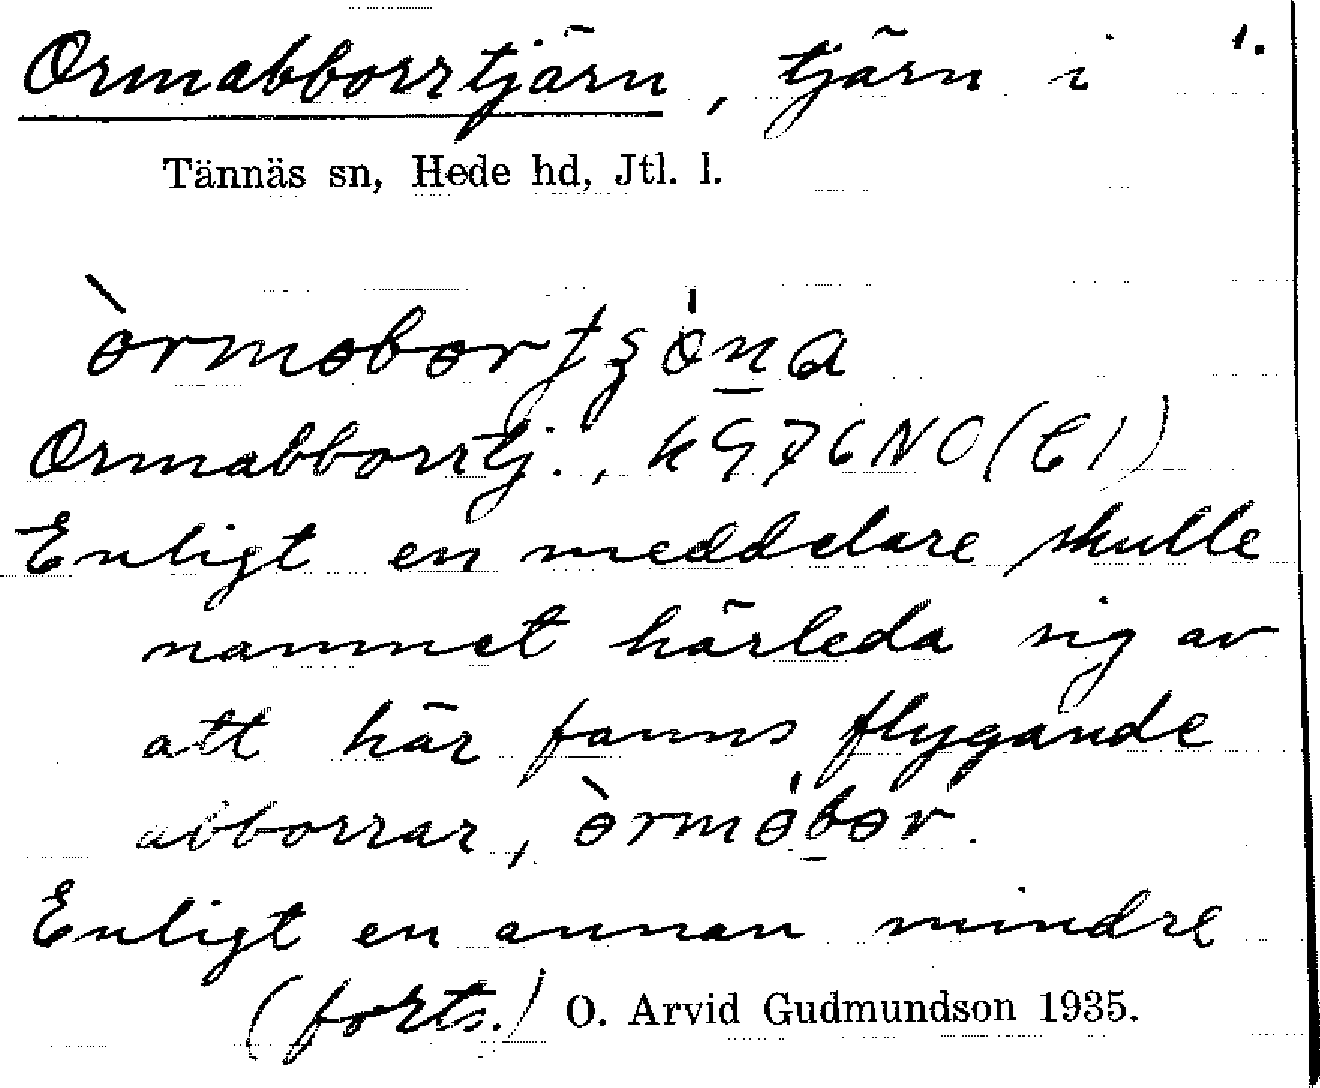 Ormabborrtjärn, tjärn i 1.
Tännäs sn, Hede hd, Jtl. l.
Ormabborrtj., k976NO(C1)
Enligt en meddelare skulle
namnet härleda sig av
att här fanns flygande
abborrar,
Enligt en annan mindre
(forts.) O. Arvid Gudmundson 1935.